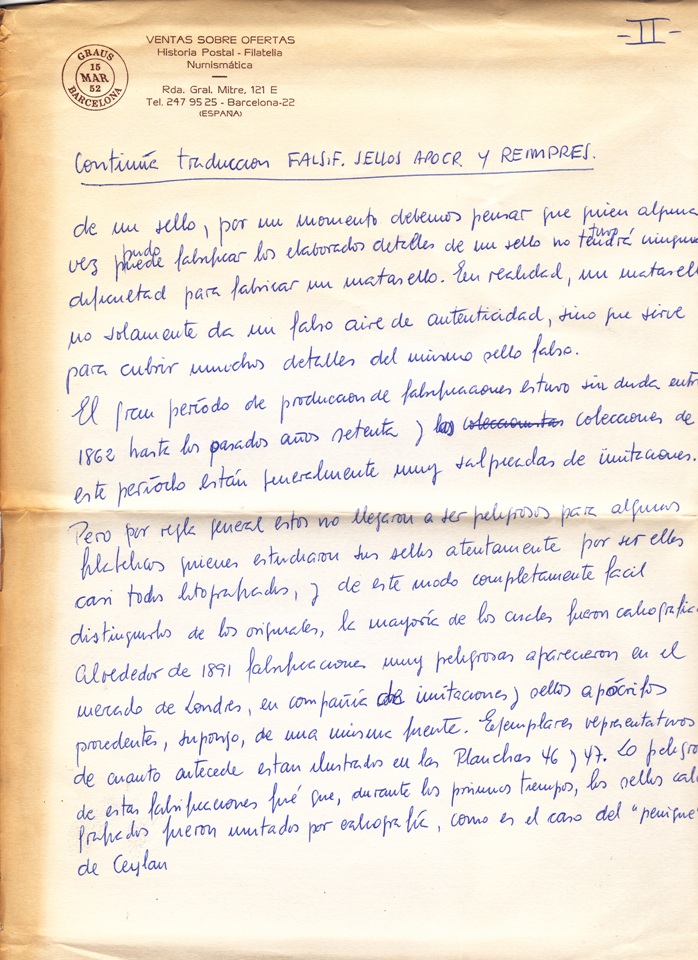 -II-
GRAUS
15
MAR
52
BARCELONA
VENTAS SOBRE OFERTAS
Historia Postal - Filatelia
Numismática
Rda. Gral. Mitre, 121 E
Tel. 247 95 25 - Barcelona-22
(ESPAÑA)
Continúa traduccion FALSIF. SELLOS APOCR. Y REIMPRES.
de un sello, por un momento debemos pensar que quien alguna
pudo tuvo
vez puede fabrificar los elaborados detalles de un sello no tendrá ninguna
dificultad para fabricar un matasello. En realidad, un matasell
no solamente da un falso aire de autenticidad, sino que sirve
para cubrir muchos detalles del mismo sello falso.
El gran período de produccion de falsificaciones estuvo sin duda entr
1862 hasta los pasados años setenta y las coleccionistas colecciones de
este período están generalmente muy salpicadas de imitaciones.
Pero por regla general estos no llegaron a ser peligrosos para algunos
filatelicos quienes estudiaron sus sellos atentamente por ser ellos
casi todos litografiados, y de este modo completamente facil
distinguirlos de los originales, la mayoría de los cuales fueron calcografia
Alrededor de 1891 falsificaciones muy peligrosas aparecieron en el
mercado de Londres, en compañía de imitaciones y sellos apócrifos
procedentes, supongo, de una misma fuente. Ejemplares representativos
de cuanto antecede estan ilustrados en las Planchas 46 y 47. Lo peligro
de estas falsificaciones fué que, durante los primeros tiempos, los sellos calc
grafiados fueron imitados por calcografía, como es el caso del "penique"
de Ceylan